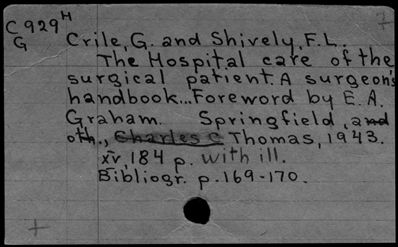 C929H
G
Crile, G. and Shively, F.L.
The Hospital care of the
surgical patient. A surgeon's
handbook...Foreword by E.A.
Graham. Springfield, and
oth., Charles C Thomas, 1943.
xv, 184 p. with ill.
Bibliogr. p.169-170.